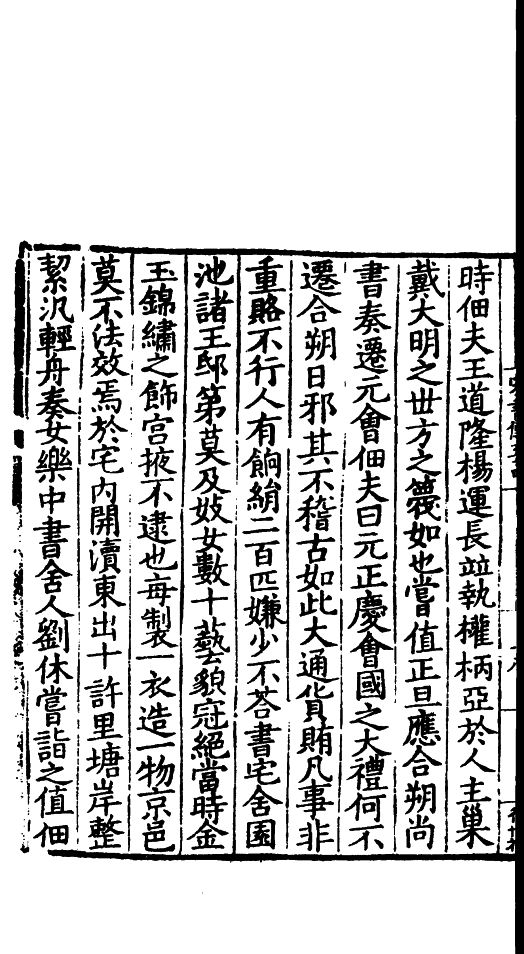 時佃夫王道隆楊運長並執權柄亞於人主巢
戴大明之世方之篾如也嘗值正旦應合朔尚
書奏遷元會佃夫曰元正慶會國之大禮何不
遷合朔日邪其不稽古如此大通貨賄凡事非
重賂不行人有餉絹二百匹嫌少不荅書宅舍園
池諸王邸第莫及妓女數十藝貌冠絕當時金
玉錦繡之飾宮掖不逮也每製一衣造一物京邑
莫不法效焉於宅內開瀆東出十許里塘岸整
絜汎輕舟奏女樂中書舍人劉休嘗詣之值佃